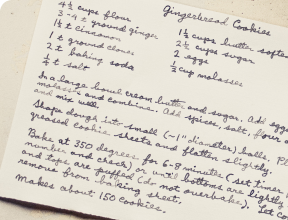 Gingerbread Cookies
4½ cups flour
3-4 t ground ginger
1½ t cinnamon
1 t ground cloves
2 t baking soda
½ t salt
1½ cups butter, softe
2½ cups sugar
2 eggs
½ cup molasses
In a large bowl cream butter and sugar. Add eggs
molasses and combine. Add spices, salt, flour
and mix well.
Shape dough into small (~1" diameter) balls. Pl
greased cookie sheets and flatten slightly.
Bake at 350 degrees for 6-8 minutes (set timer
number and check) or until bottoms are lightly
and tops are puffed (do not overbake). Let co
remove from baking sheet.
Makes about 150 cookies.